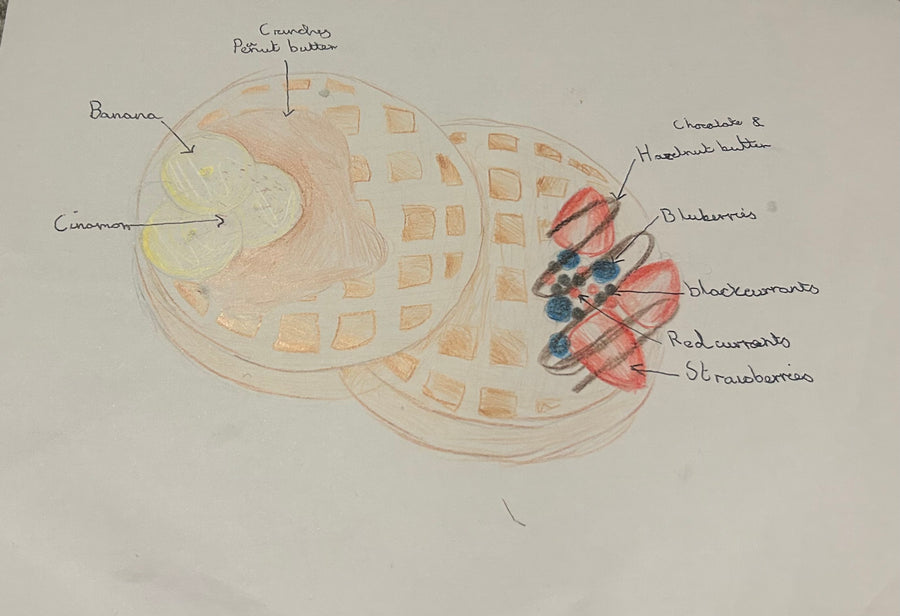 Crunchy
Penut butter
Banana
Cinamon
Chocolate &
Hazelnut butter
Bluberries
blackcurrants
Redcurrants
Strawberries